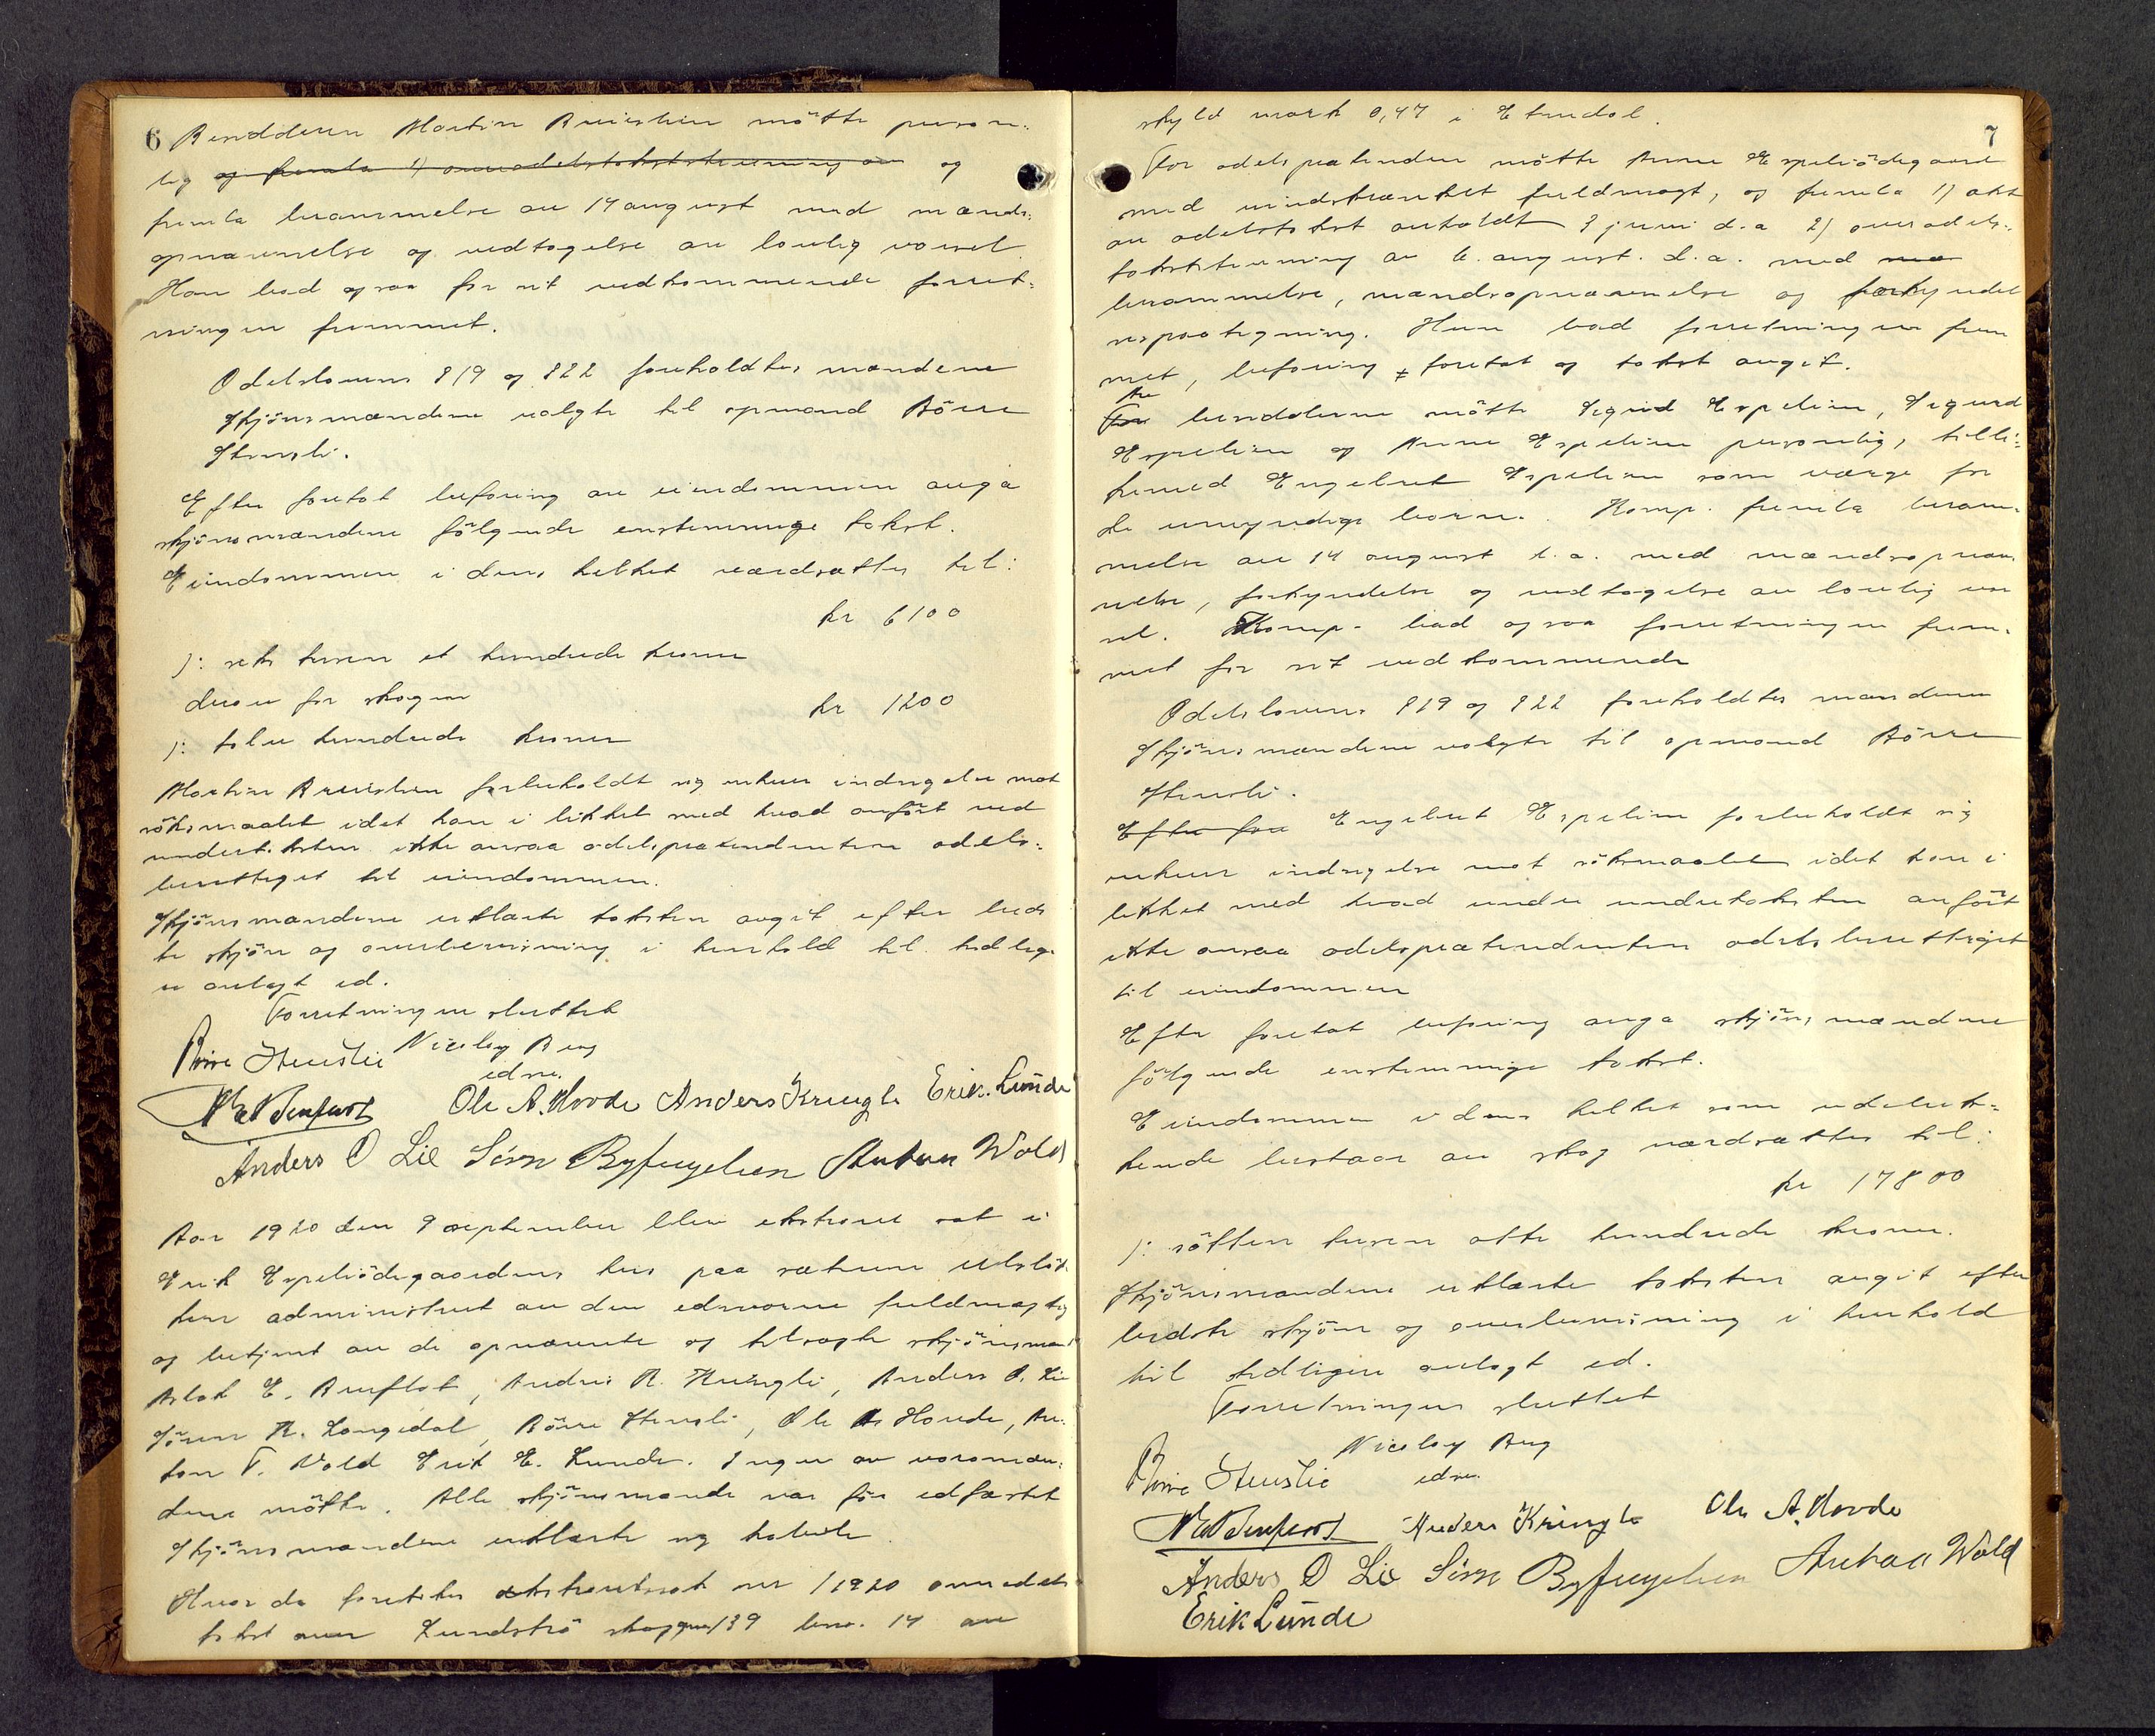 6 Besidderen Martin Bruislien mötte person-
lig og fremla 1) overodelstakststevning av og
fremla berammelse av 14 august med mands-
opnævnelse og vedtagelse av lovlig varsel.
Han bad ogsaa for sit vedkommende forret-
ningen fremmet.
Odelslovens §19 og §22 foreholdtes mændene
Skjönsmændene valgte til opmand Börre
Stensli.
Efter foretat befaring av eiendommen avga
skjönsmændene fölgende enstemmige takst.
Eiendommen i dens helhet værdsættes til:
kr 6100
): seks tusen et hundrede kroner
derav for skogen kr 1200
): tolv hundrede kroner
Martin Bruislien forbeholdt sig enhver indsigelse mot
söksmaalet idet han i likhet med hvad anfört ved
undertaksten ikke ansaa odelsprætendenten odels-
berettiget til eiendommen.
Skjönsmændene erklærte taksten avgit efter beds
te skjön og overbevisning i henhold til tidlige
re avlagt ed.
Forretningen sluttet
Nicolay Berg
edsv.
Börre Stenslie
Ole A. Hovde Anders Kringli Erik Lunde
Anders O Lie Sörn Byfuglien Anton Wold
Aar 1920 den 9 september blev ekstraret sat i
Erik Espeliödegaardens hus paa sæteren
ken administrert av den edsvorne fuldmægtig
og betjent av de opnævnte og tilsagte skjönsmænd
Aslak E. Bruflat, Anders R. Kringli, Anders O. Lie
Sören R. Langedal, Börre Stensli, Ole A. Hovde, An-
ton T. Vold Erik E. Lunde. Ingen av varamæn-
dene mötte. Alle skjönsmænde var för edfæstet
Skjönsmændene erklærte sig habile.
Hvorda foretokes ekstraretssak nr 1/1920 overodels
takst over Lundströ skog gnr 139 bnr. 14 av
7
skyld mark 0,47 i Etnedal.
For odelsprætenden mötte Anne Espeliödegaard
med uindskrænket fuldmagt, og fremla 1) akt
av odelstakst avholdt 3 juni d.a 2) overodels-
takststevning av 6. august. d.a. med mæ
berammelse, mandsopnævnelse og forkyndel
sespaategning. Hun bad forretningen frem
met, befaring foretat og takst avgit.
For Av besidderne mötte Sigrid Espelien, Sigurd
Espelien og Anne Espelien personlig, tilli-
kemed Engebret Espelien som værge for
de umyndige barn. Komp. fremla beram-
melse av 14 august d.a. med mandsopnæv
nelse, forkyndelse og vedtagelse av lovlig var
sel. Komp. bad ogsaa forretningen frem-
met for sit vedkommende
Odelslovens §19 og §22 foreholdtes mændene
Skjönsmændene valgte til opmand Börre
Stensli.
Efter for Engebret Espelien forbeholdt sig
enhver indsigelse mot söksmaalet idet han i
likhet med hvad under undertaksten anfört
ikke ansaa odelsprætendenten odelsberettiget
til eiendommen
Efter foretat befaring avga skjönsmændene
fölgende enstemmige takst.
Eiendommen i dens helhet som udeluk-
kende bestaar av skog værdsættes til:
kr 17800
): sötten tusen otte hundrede kroner.
Skjönsmændene erklærte taksten avgit efter
bedste skjön og overbevisning i henhold
til tidligere avlagt ed.
Forretningen sluttet
Nicolay Berg
edsv.
Börre Stenslie
Anders Kringli Ole A. Hovde
Anders O Lie Sörn Byfuglien Anton Wold
Erik Lunde